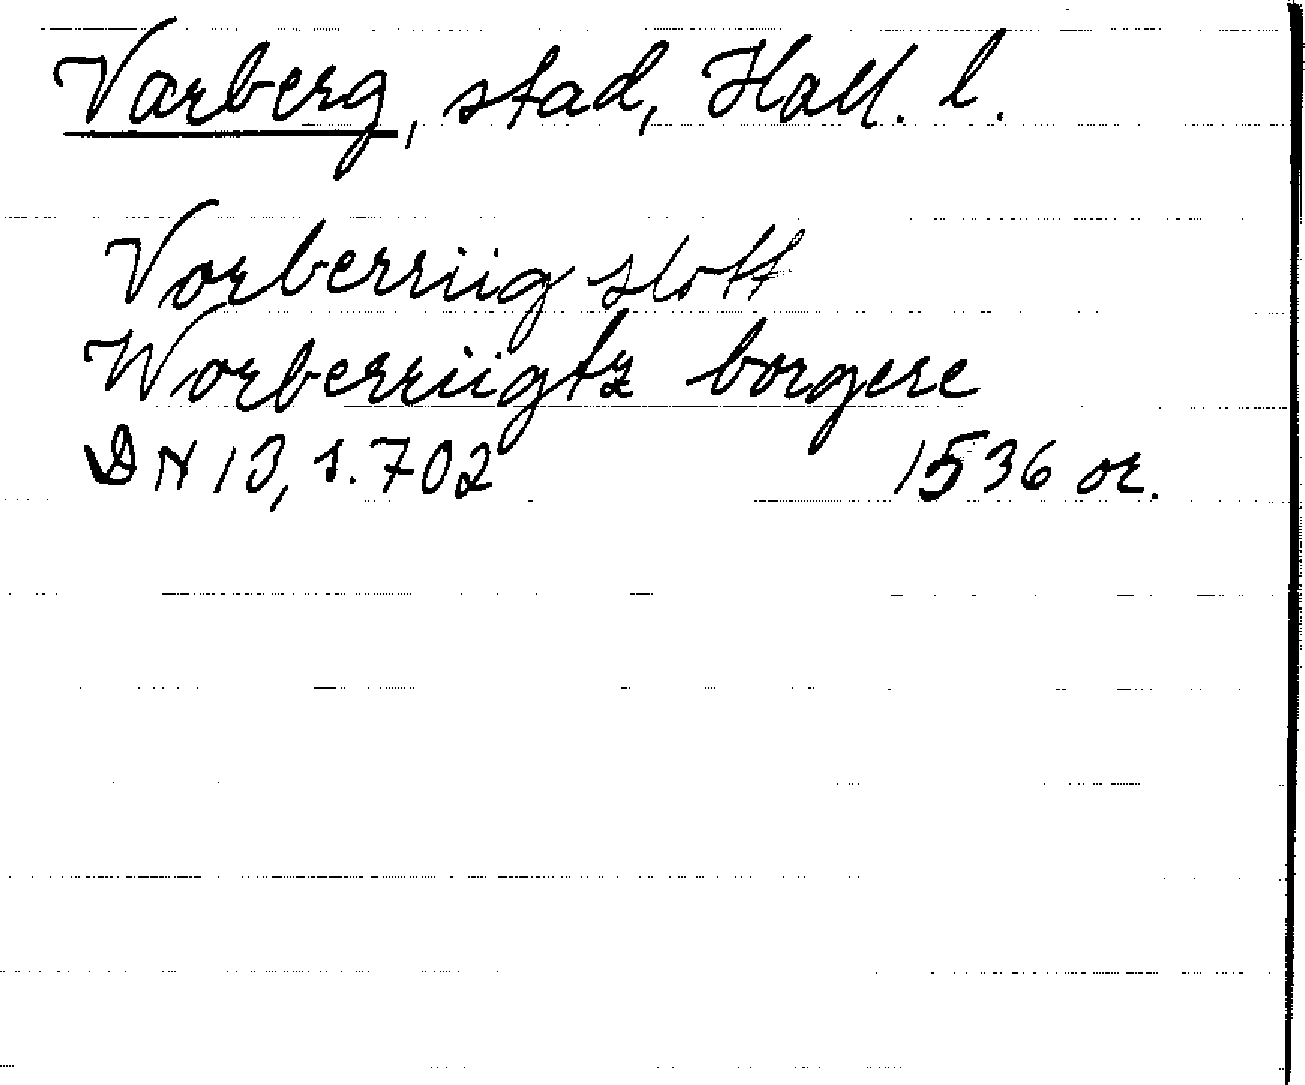 Varberg, stad, Hall. l.
Vorberriig slott
Worberriigtz borgere
DN 13, s. 702 1536 or.